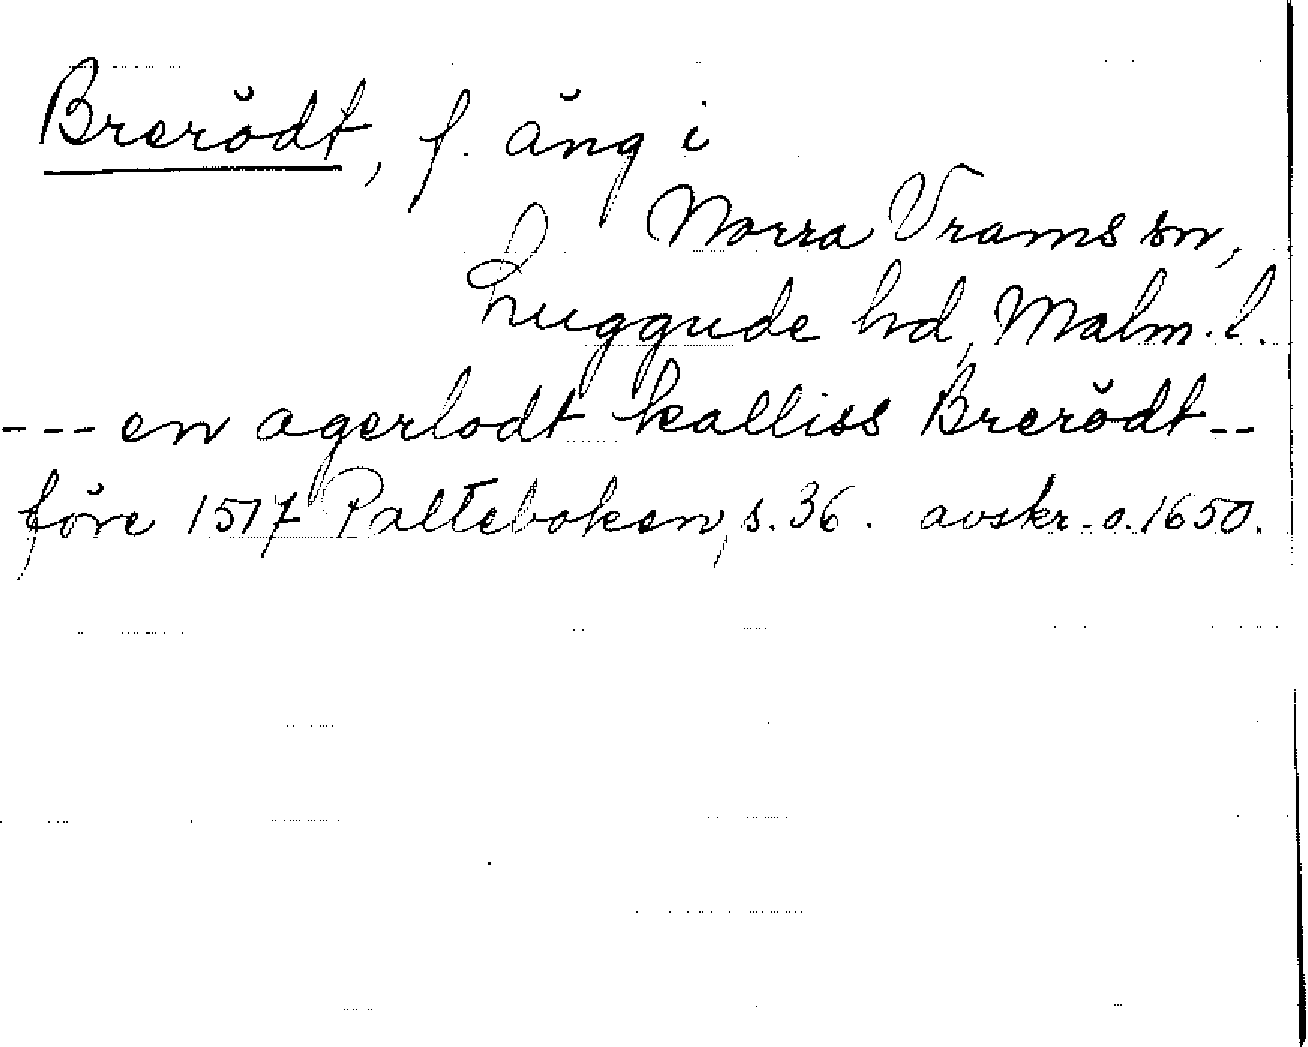 Brerödt, f. äng i
Norra Vrams sn,
Luggude hd, Malm. l.
--- en agerlodt kalliss Brerödt --
före 1517 Palteboken, s. 36. avskr. o. 1650.